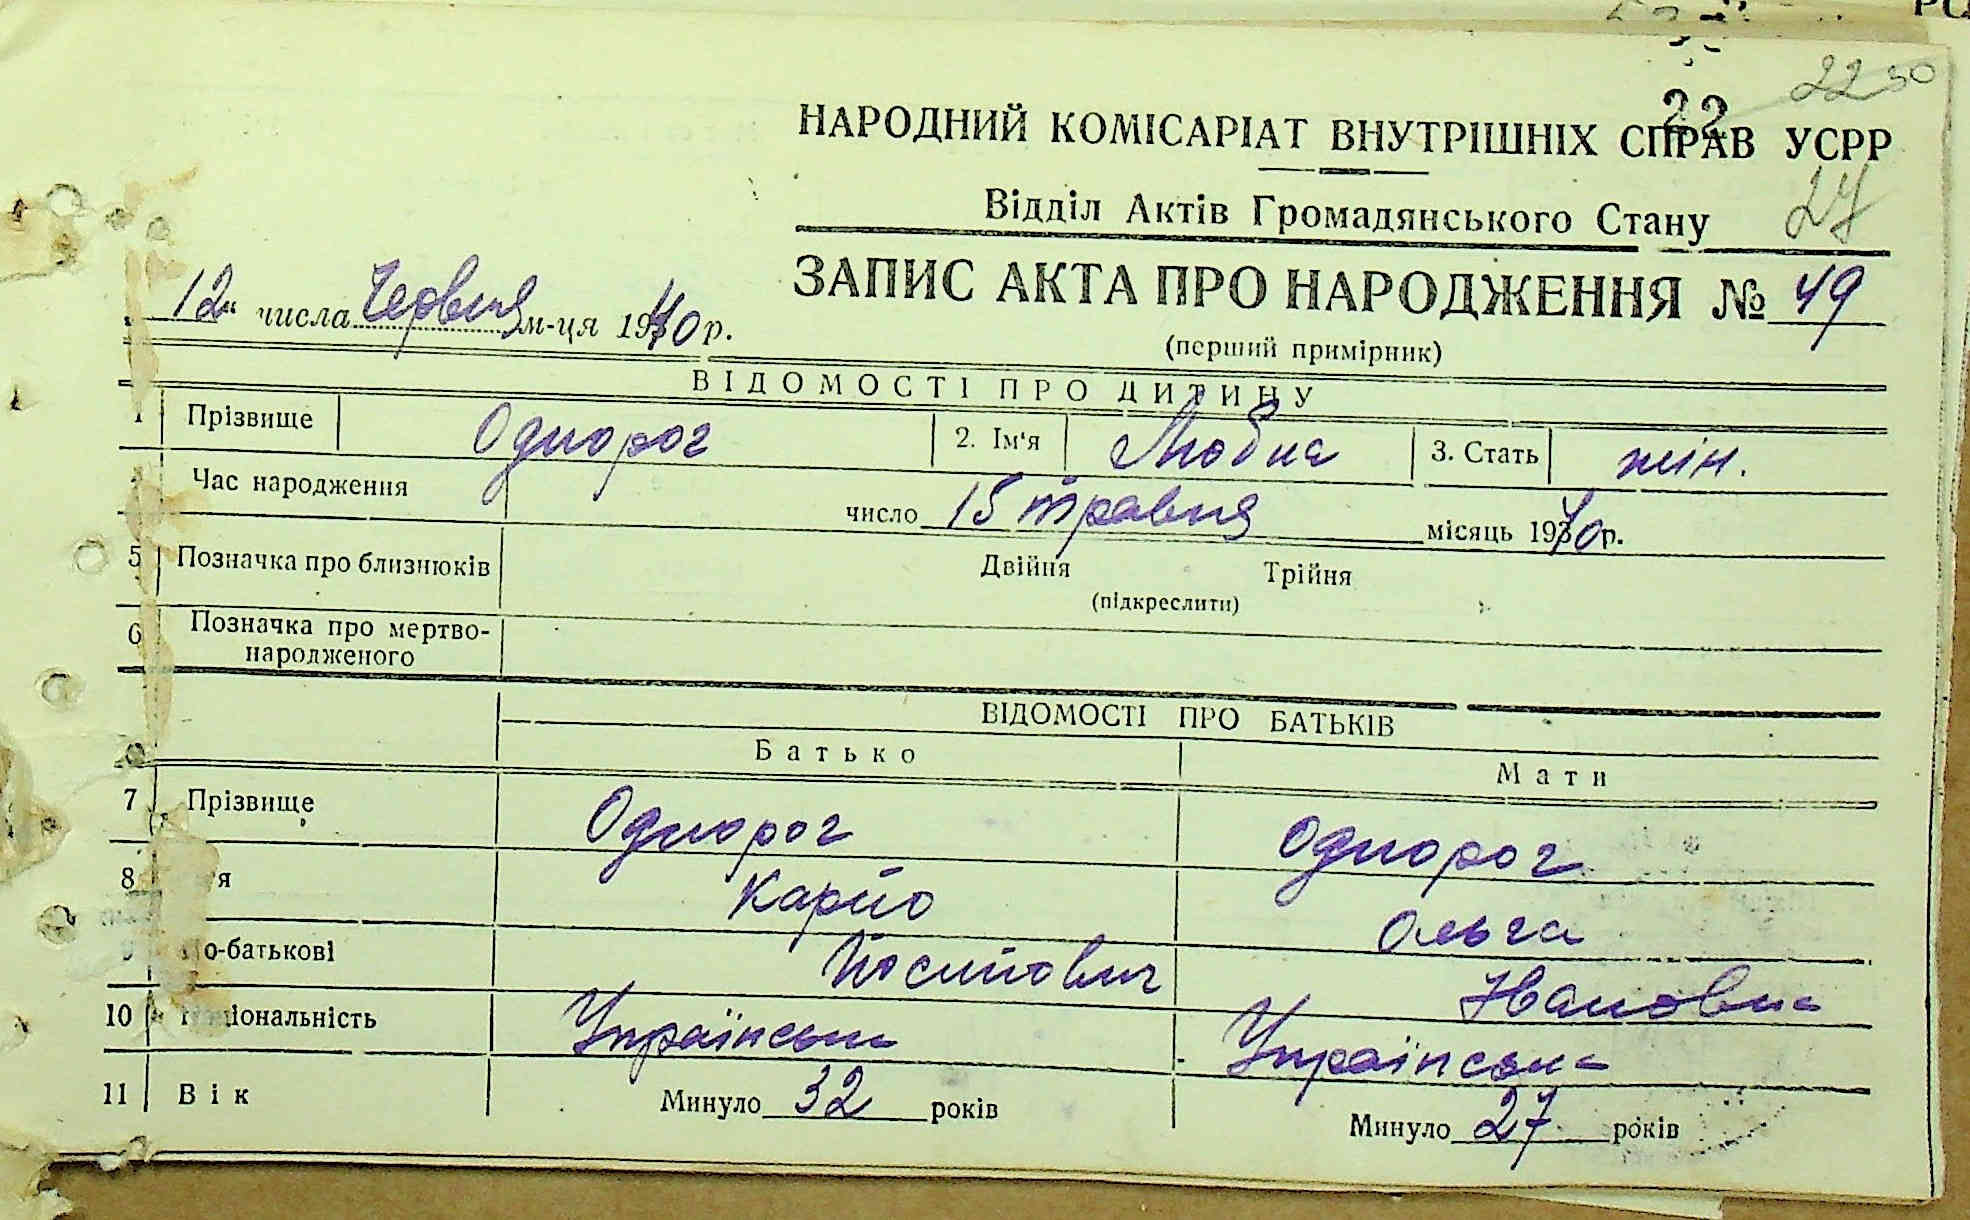 22 30
22
НАРОДНИЙ КОМІСАРІАТ ВНУТРІШНІХ СПРАВ УСРР
Відділ Актів Громадянського Стану
27
ЗАПИС АКТА ПРО НАРОДЖЕННЯ № 49
„12“ числа Червня м-ця 1940 р.
(перший примірник)
ВІДОМОСТІ ПРО ДИТИНУ
1 Прізвище Однорог 2. Ім'я Любов 3. Стать жін.
Час народження число 15 травня місяць 1940 р.
5 Позначка про близнюків Двійня Трійня
(підкреслити)
6 Позначка про мертво-
народженого
ВІДОМОСТІ ПРО БАТЬКІВ
Батько Мати
7 Прізвище Однорог Однорог
8 я Карпо Ольга
9 по-батькові Йосипович Ивановна
10 Національність Українець Українка
11 Вік Минуло 32 років Минуло 27 років